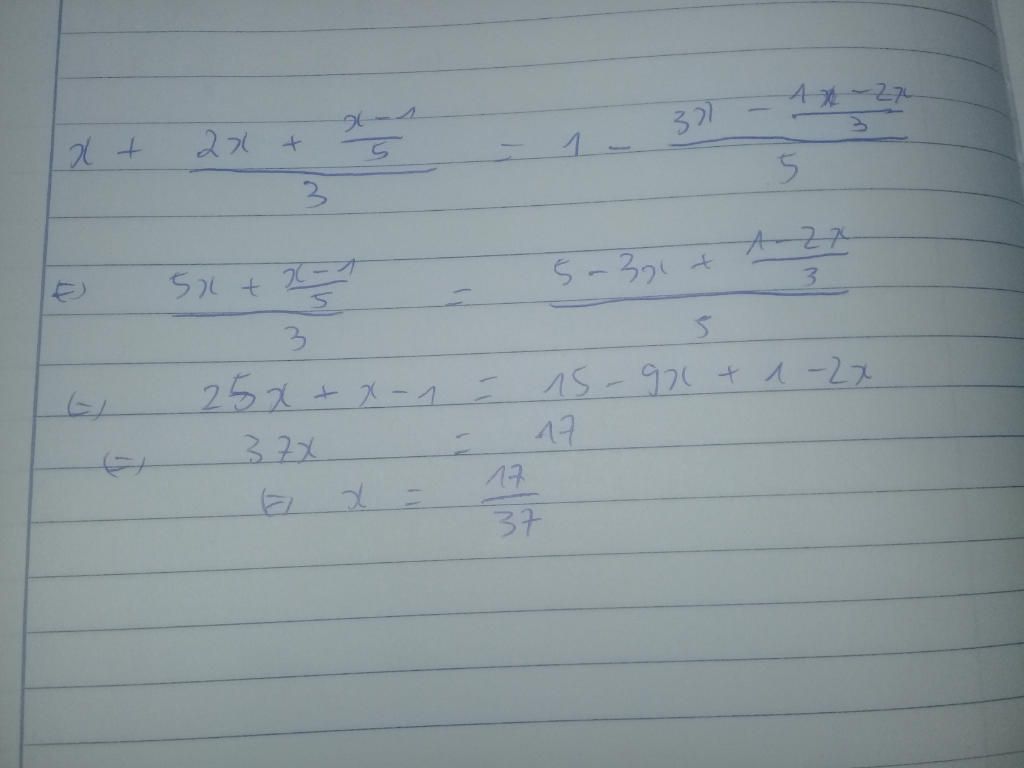 x + \frac{2x + \frac{x-1}{5}}{3} = 1 - \frac{3x - \frac{1x-2x}{3}}{5}
⇔ \frac{5x + \frac{x-1}{5}}{3} = \frac{5 - 3x + \frac{1-2x}{3}}{5}
⇔ 25x + x - 1 = 15 - 9x + 1 - 2x
⇔ 37x = 17
⇔ x = \frac{17}{37}